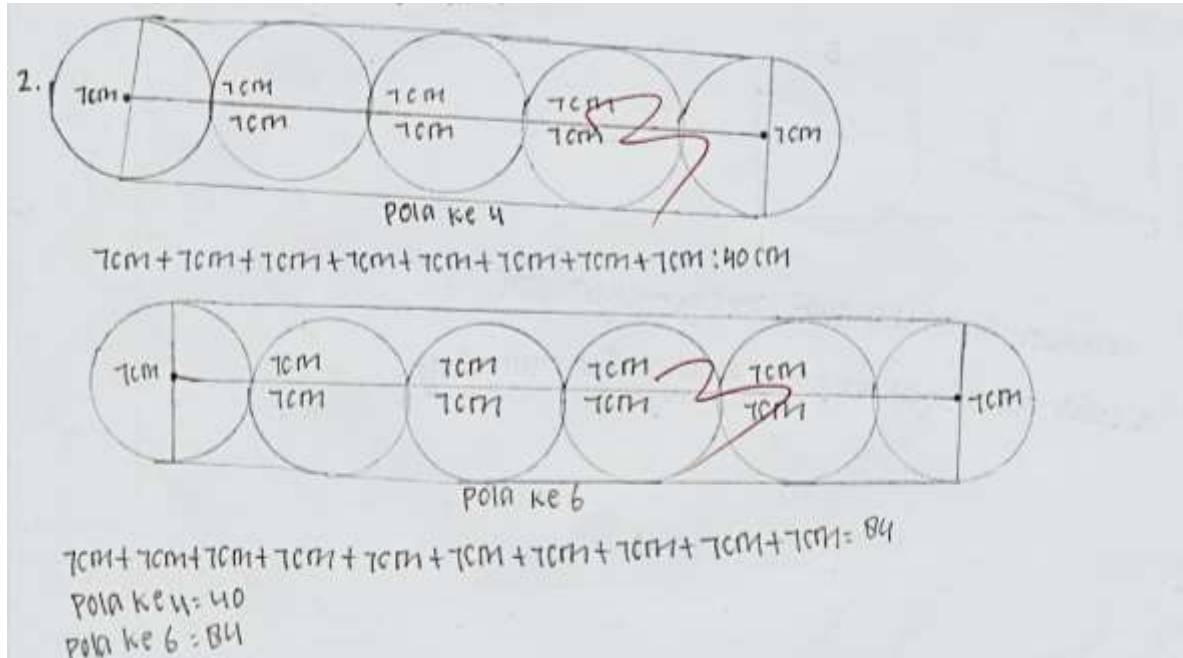 2.
7cm 7cm 7cm 7cm 7cm
7cm 7cm 7cm
Pola ke 4
7cm+7cm+7cm+7cm+7cm+7cm+7cm+7cm:40 cm
7cm 7cm 7cm 7cm 7cm 7cm
7cm 7cm 7cm 7cm
Pola ke 6
7cm+7cm+7cm+7cm+7cm+7cm+7cm+7cm+7cm+7cm= 84
Pola ke 4= 40
Pola ke 6 = 84